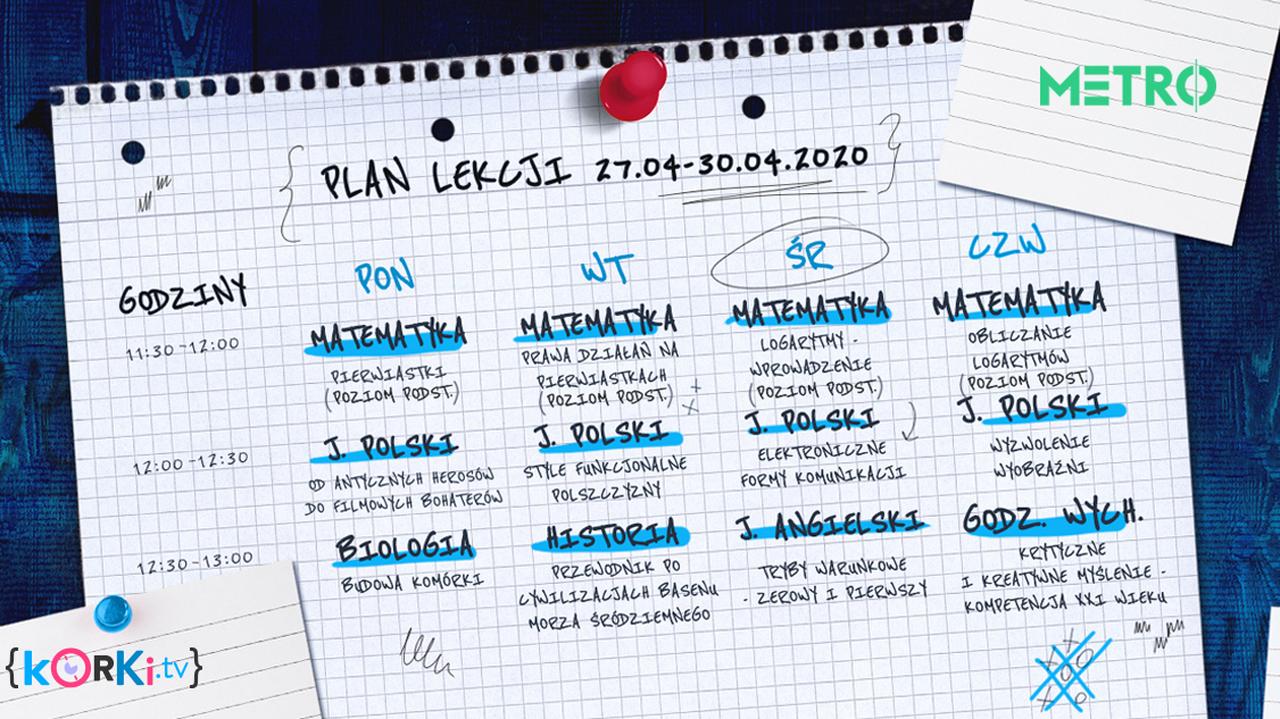 METRO
PLAN LEKCJI 27.04-30.04.2020
GODZINY
PON
WT
ŚR
CZW
11:30-12:00
MATEMATYKA
PIERWIASTKI
(POZIOM PODST.)
MATEMATYKA
PRAWA DZIAŁAŃ NA
PIERWIASTKACH
(POZIOM PODST.)
MATEMATYKA
LOGARYTMY -
WPROWADZENIE
(POZIOM PODST.)
MATEMATYKA
OBLICZANIE
LOGARYTMÓW
(POZIOM PODST.)
12:00-12:30
J. POLSKI
OD ANTYCZNYCH HEROSÓW
DO FILMOWYCH BOHATERÓW
J. POLSKI
STYLE FUNKCJONALNE
POLSZCZYZNY
J. POLSKI
ELEKTRONICZNE
FORMY KOMUNIKACJI
J. POLSKI
WYZWOLENIE
WYOBRAŹNI
12:30-13:00
BIOLOGIA
BUDOWA KOMÓRKI
HISTORIA
PRZEWODNIK PO
CYWILIZACJACH BASENU
MORZA ŚRÓDZIEMNEGO
J. ANGIELSKI
TRYBY WARUNKOWE
- ZEROWY I PIERWSZY
GODZ. WYCH.
KRYTYCZNE
I KREATYWNE MYŚLENIE -
KOMPETENCJA XXI WIEKU
{KORKi.tv}